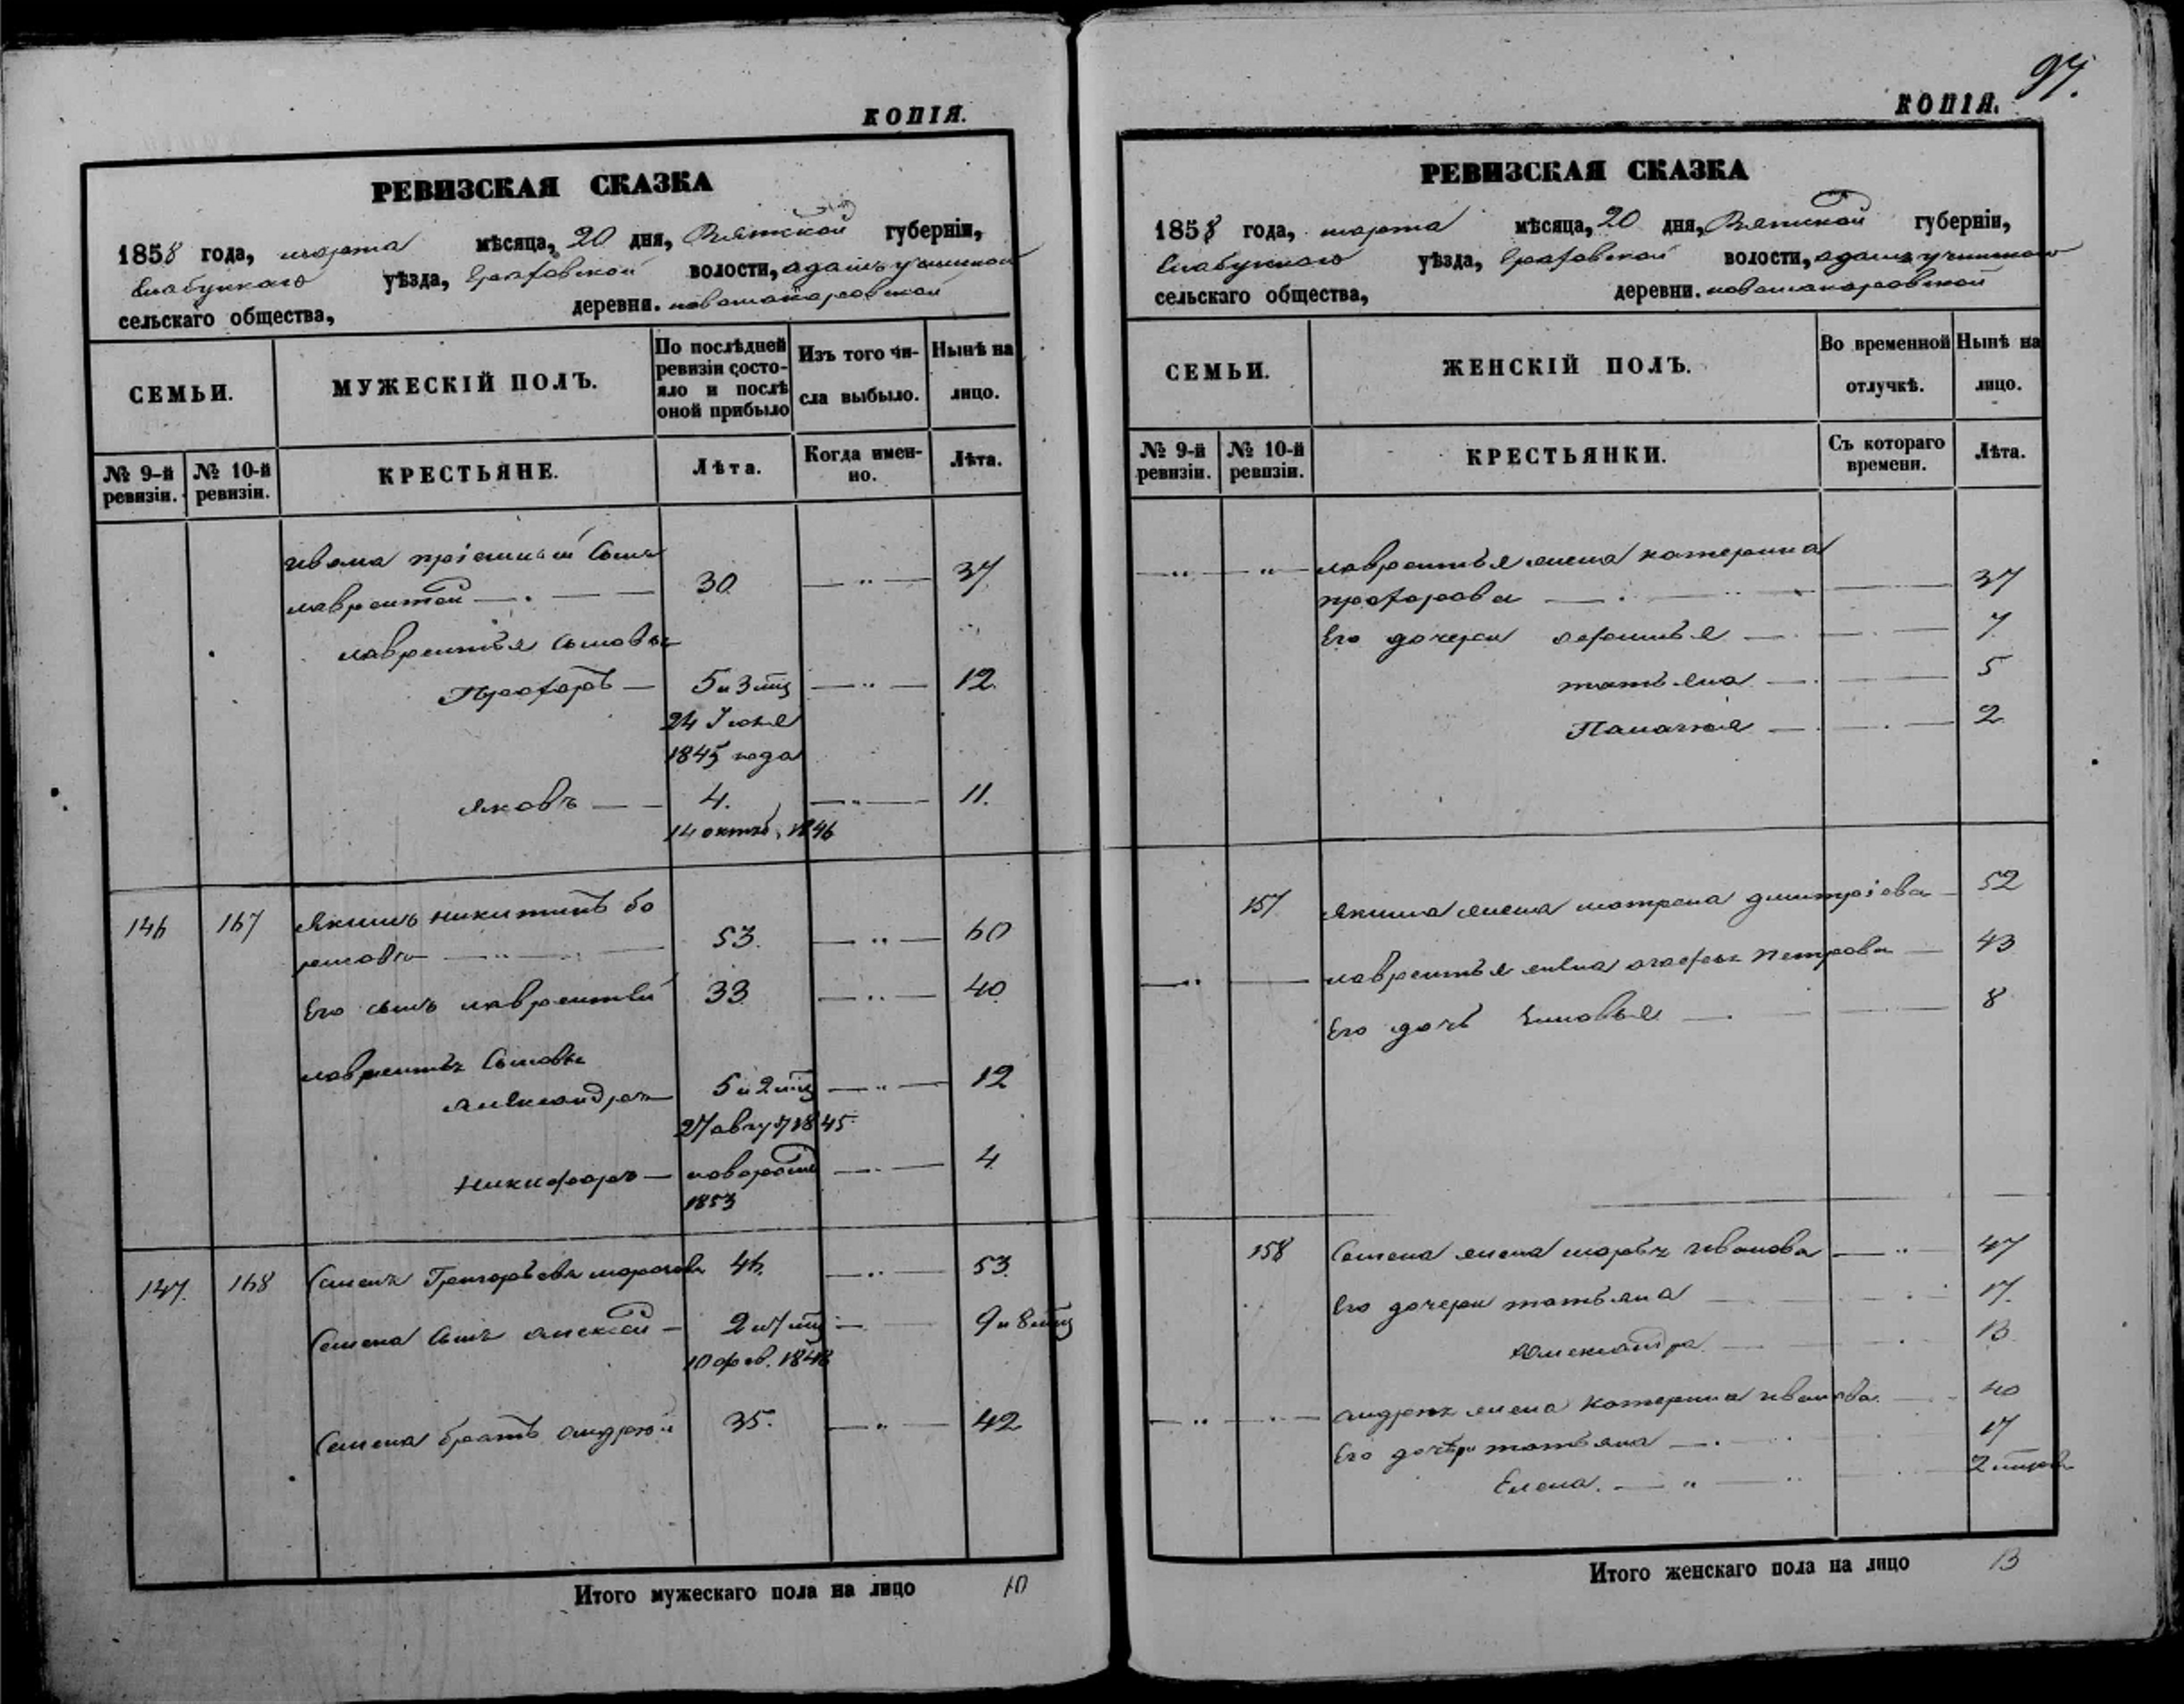 97.
КОПІЯ.
РЕВИЗСКАЯ СКАЗКА
1858 года, марта мѣсяца, 20 дня, Вятской губерніи,
Елабужскаго уѣзда, Граховской волости,
сельскаго общества, деревни.
СЕМЬИ.
МУЖЕСКІЙ ПОЛЪ.
По послѣдней ревизіи состояло и послѣ оной прибыло
Изъ того числа выбыло.
Нынѣ на лицо.
№ 9-й ревизіи.
№ 10-й ревизіи.
КРЕСТЬЯНЕ.
Лѣта.
Когда именно.
Лѣта.
Ивана пріемный сынъ
Лаврентей 30 37
Лаврентья сыновья
Прохоръ 5 и 3 мц 12
24 Іюня
1845 года
Яковъ 4. 11.
14 октяб. 1846
146 167 Якимъ Никитинъ Бо
рисовъ 53. 60
Его сынъ Лаврентей 33 40
Лаврентья сыновья
Александръ 5 и 2 мц 12
27 авгу 1845
Никифоръ новорожд 4
1853
147. 168 Семенъ Григорьевъ 46. 53.
Семена сынъ Алексей 2 и 7 мц 9 и 8 мц
10 фев. 1848
Семена братъ Андрей 35. 42
Итого мужескаго пола на лицо 10
КОПІЯ.
РЕВИЗСКАЯ СКАЗКА
1858 года, марта мѣсяца, 20 дня, Вятской губерніи,
Елабужскаго уѣзда, Граховской волости,
сельскаго общества, деревни.
СЕМЬИ.
ЖЕНСКІЙ ПОЛЪ.
Во временной отлучкѣ.
Нынѣ на лицо.
№ 9-й ревизіи.
№ 10-й ревизіи.
КРЕСТЬЯНКИ.
Съ котораго времени.
Лѣта.
Лаврентья жена Катерина
Прохорова 37
Его дочери 7
Татьяна 5
Палагея 2
157 Якима жена Матрена Дмитріева 52
Лаврентья жена Петрова 43
Его дочь Зиновья 8
158 Семена жена Марья Иванова 47
Его дочери Татьяна 17.
Александра 13
Андрея жена Катерина Иванова 40
Его дочери Татьяна 17
Елена. 2
Итого женскаго пола на лицо 13